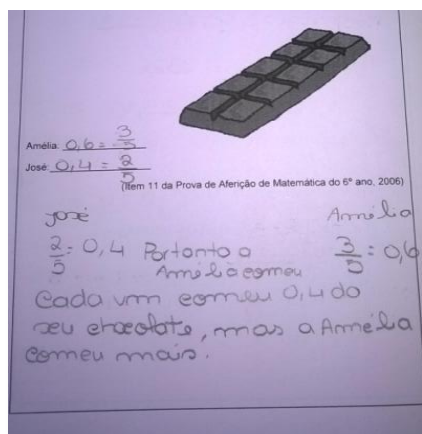 Amélia: 0,6 = 3/5
José: 0,4 = 2/5
(Item 11 da Prova de Aferição de Matemática do 6º ano, 2006)
José Amélia
2/5 = 0,4 Portanto a 3/5 = 0,6
Amélia comeu
Cada um comeu 0,4 do
seu chocolate, mas a Amélia
comeu mais.